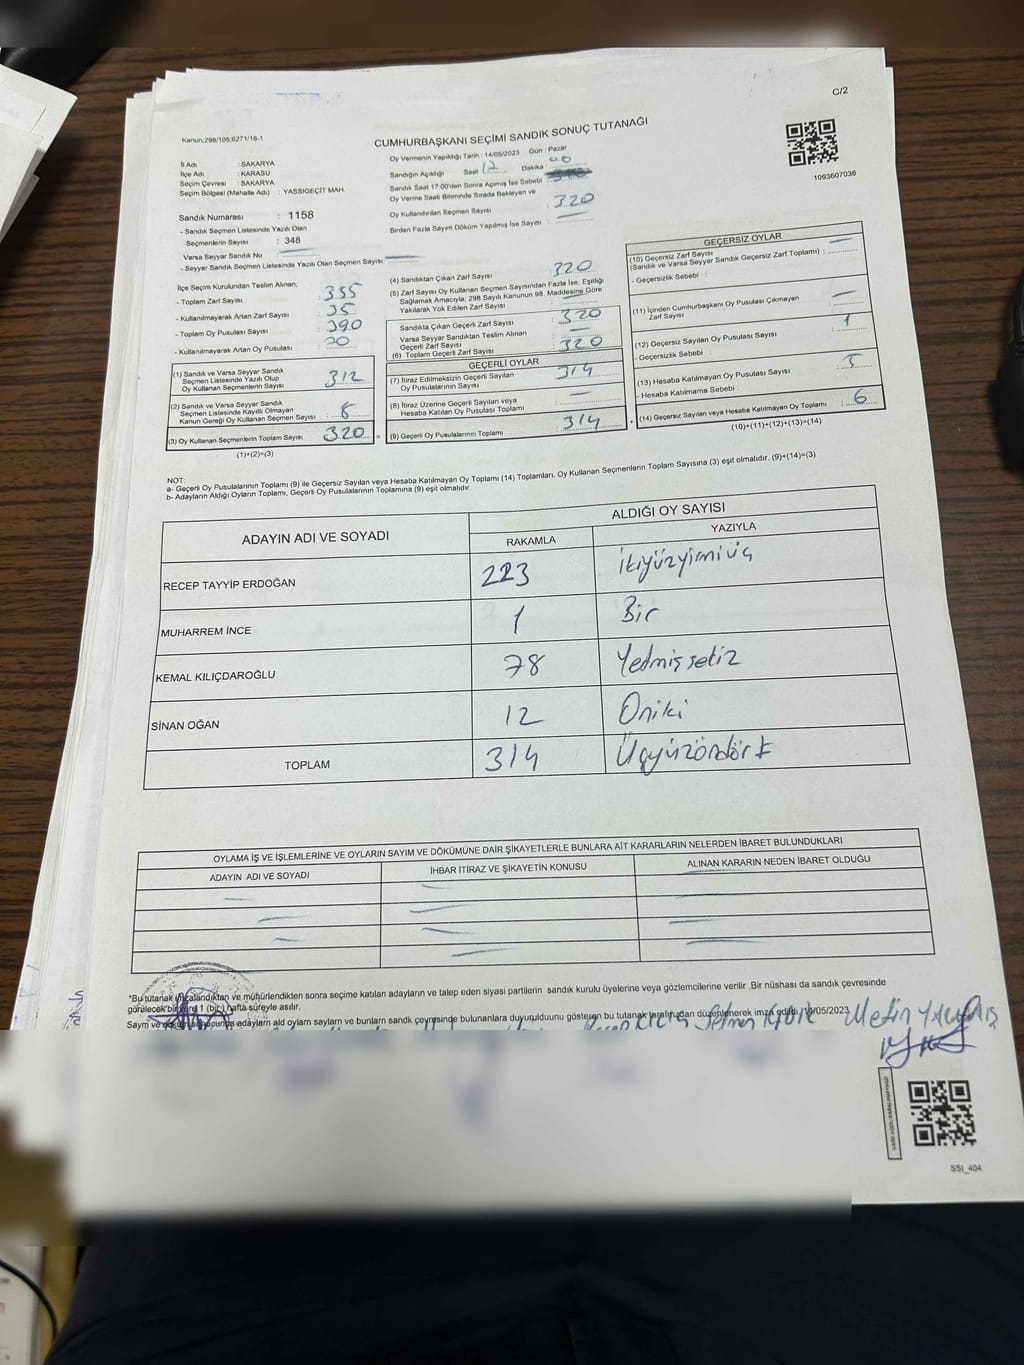 C/2
Kanun,298/105,6271/18-1
CUMHURBAŞKANI SEÇİMİ SANDIK SONUÇ TUTANAĞI
1093607038
İl Adı : SAKARYA
İlçe Adı : KARASU
Seçim Çevresi : SAKARYA
Seçim Bölgesi (Mahalle Adı) : YASSIGEÇİT MAH.
Oy Vermenin Yapıldığı Tarih : 14/05/2023 Gün : Pazar
Sandığın Açıldığı Saat : 17 Dakika :
Sandık Saat 17:00'den Sonra Açımış İse Sebebi :
Oy Verme Saati Bitiminde Sırada Bekleyen ve
Oy Kullandırılan Seçmen Sayısı : 320
Birden Fazla Sayım Döküm Yapılmış İse Sayısı :
Sandık Numarası : 1158
- Sandık Seçmen Listesinde Yazılı Olan
Seçmenlerin Sayısı : 348
Varsa Seyyar Sandık No
- Seyyar Sandık Seçmen Listesinde Yazılı Olan Seçmen Sayısı:
İlçe Seçim Kurulundan Teslim Alınan;
- Toplam Zarf Sayısı : 355
- Kullanılmayarak Artan Zarf Sayısı : 35
- Toplam Oy Pusulası Sayısı : 390
- Kullanılmayarak Artan Oy Pusulası : 70
(1) Sandık ve Varsa Seyyar Sandık
Seçmen Listesinde Yazılı Olup
Oy Kullanan Seçmenlerin Sayısı : 312
(2) Sandık ve Varsa Seyyar Sandık
Seçmen Listesinde Kayıtlı Olmayan
Kanun Gereği Oy Kullanan Seçmen Sayısı : 8
(3) Oy Kullanan Seçmenlerin Toplam Sayısı 320
(1)+(2)=(3)
(4) Sandıktan Çıkan Zarf Sayısı 320
(5) Zarf Sayısı Oy Kullanan Seçmen Sayısından Fazla İse, Eşitliği
Sağlamak Amacıyla; 298 Sayılı Kanunun 98. Maddesine Göre
Yakılarak Yok Edilen Zarf Sayısı :
Sandıkta Çıkan Geçerli Zarf Sayısı : 320
Varsa Seyyar Sandıktan Teslim Alınan
Geçerli Zarf Sayısı :
(6) Toplam Geçerli Zarf Sayısı : 320
GEÇERLİ OYLAR
(7) İtiraz Edilmeksizin Geçerli Sayılan
Oy Pusulalarının Sayısı : 314
(8) İtiraz Üzerine Geçerli Sayılan veya
Hesaba Katılan Oy Pusulası Toplamı :
(9) Geçerli Oy Pusulalarının Toplamı : 314
GEÇERSİZ OYLAR
(10) Geçersiz Zarf Sayısı
(Sandık ve Varsa Seyyar Sandık Geçersiz Zarf Toplamı) :
- Geçersizlik Sebebi :
(11) İçinden Cumhurbaşkanı Oy Pusulası Çıkmayan
Zarf Sayısı :
(12) Geçersiz Sayılan Oy Pusulası Sayısı : 1
- Geçersizlik Sebebi :
(13) Hesaba Katılmayan Oy Pusulası Sayısı : 5
- Hesaba Katılmama Sebebi :
(14) Geçersiz Sayılan veya Hesaba Katılmayan Oy Toplamı : 6
(10)+(11)+(12)+(13)=(14)
NOT:
a- Geçerli Oy Pusulalarının Toplamı (9) ile Geçersiz Sayılan veya Hesaba Katılmayan Oy Toplamı (14) Toplamları, Oy Kullanan Seçmenlerin Toplam Sayısına (3) eşit olmalıdır. (9)+(14)=(3)
b- Adayların Aldığı Oyların Toplamı, Geçerli Oy Pusulalarının Toplamına (9) eşit olmalıdır.
ADAYIN ADI VE SOYADI ALDIĞI OY SAYISI
RAKAMLA YAZIYLA
RECEP TAYYİP ERDOĞAN 223 İkiyüzyirmiüç
MUHARREM İNCE 1 Bir
KEMAL KILIÇDAROĞLU 78 Yetmişsekiz
SİNAN OĞAN 12 Oniki
TOPLAM 314 Üçyüzöndört
OYLAMA İŞ VE İŞLEMLERİNE VE OYLARIN SAYIM VE DÖKÜMÜNE DAİR ŞİKAYETLERLE BUNLARA AİT KARARLARIN NELERDEN İBARET BULUNDUKLARI
ADAYIN ADI VE SOYADI İHBAR İTİRAZ VE ŞİKAYETİN KONUSU ALINAN KARARIN NEDEN İBARET OLDUĞU
*Bu tutanak imzalandıktan ve mühürlendikten sonra seçime katılan adayların ve talep eden siyasi partilerin sandık kurulu üyelerine veya gözlemcilerine verilir .Bir nüshası da sandık çevresinde
görülecek bir yere 1 (bir) hafta süreyle asılır.
Sayım ve döküm sonuçunda adayların ald oyların sayıları ve bunlarn sandk çevresinde bulunanlara duyurulduunu gösteren bu tutanak tarafmızdan düzenlenerek imza edildi
SSI_404